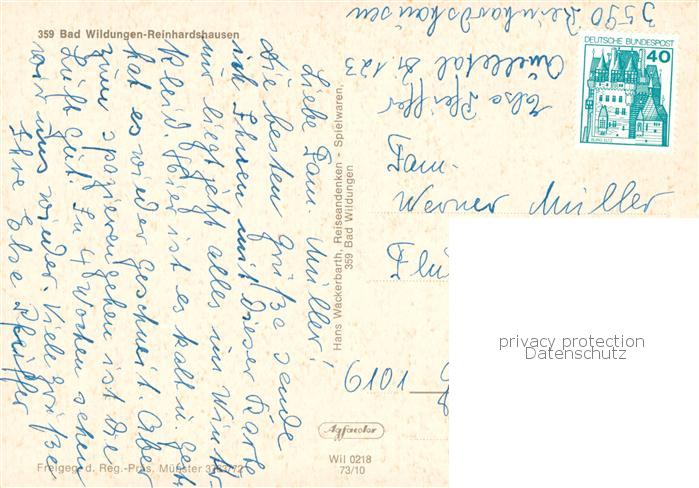 359 Bad Wildungen-Reinhardshausen
Liebe Fam. Müller!
Die besten Grüße sende
ich Ihnen mit dieser Karte
wie liegt jetzt alles im Winter-
kleid. Hier ist es kalt u. gestern
hat es wieder geschneit. Aber
zum spazierengehen ist die
Luft gut. In 4 Wochen sehen
wir uns wieder. Viele Grüße
Ihre Else Pfeiffer
Hans Wackerbarth, Reiseandenken - Spielwaren,
359 Bad Wildungen
Else Pfeiffer
Quelletal Str 123
3590 Reinhardshausen
DEUTSCHE BUNDESPOST
40
BURG ELTZ
Fam.
Werner Müller
1019
Agfacolor
Wil 0218
73/10
Freigeg. d. Reg.-Präs. Münster
privacy protection
Datenschutz